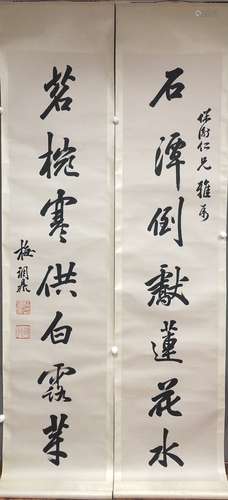 石潭倒献蓮花水
仁兄雅属
茗椀寒供白露芽
梅調鼎